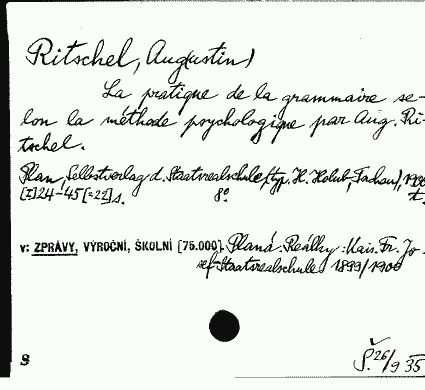 Ritschel, Aug(ustin)
La pratique de la grammaire se-
lon la méthode psychologique par Aug. Ri-
tschel.
Plan, Selbstverlag d. Staatsrealschule (typ. H. Holub, Tachau), 1900
[I]24-45[=22]s. 8° t.
v: ZPRÁVY, VÝROČNÍ, ŠKOLNÍ [75.000]. Planá. Reálky: Kais. Fr. Jo-
sef-Staatsrealschule 1899/1900
S Š. 26/9 35